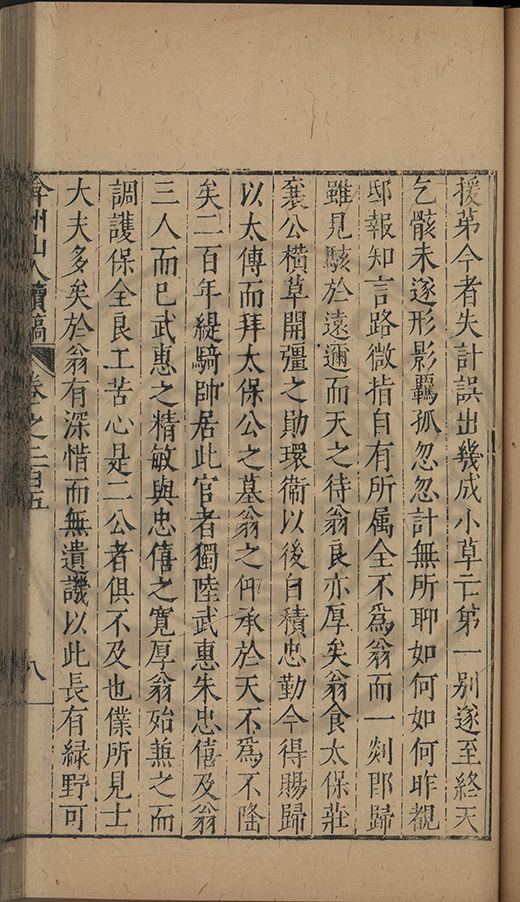 援第今者失計誤出幾成小草亡第一別遂至終天
乞骸未遂形影羈孤忽忽計無所聊如何如何昨覩
邸報知言路微指自有所属全不為翁而一剡即歸
雖見駭於遠邇而天之待翁良亦厚矣翁食太保莊
襄公橫草開彊之勛環衛以後自積忠勤今得賜歸
以太傅而拜太保公之墓翁之仰承於天不為不隆
矣二百年緹騎帥居此官者獨陸武惠朱忠僖及翁
三人而已武惠之精敏與忠僖之寬厚翁殆兼之而
調護保全良工苦心是二公者俱不及也僕所見士
大夫多矣於翁有深惜而無遺譏以此長有緑野可
弇州山人續稿 卷之二百五 八